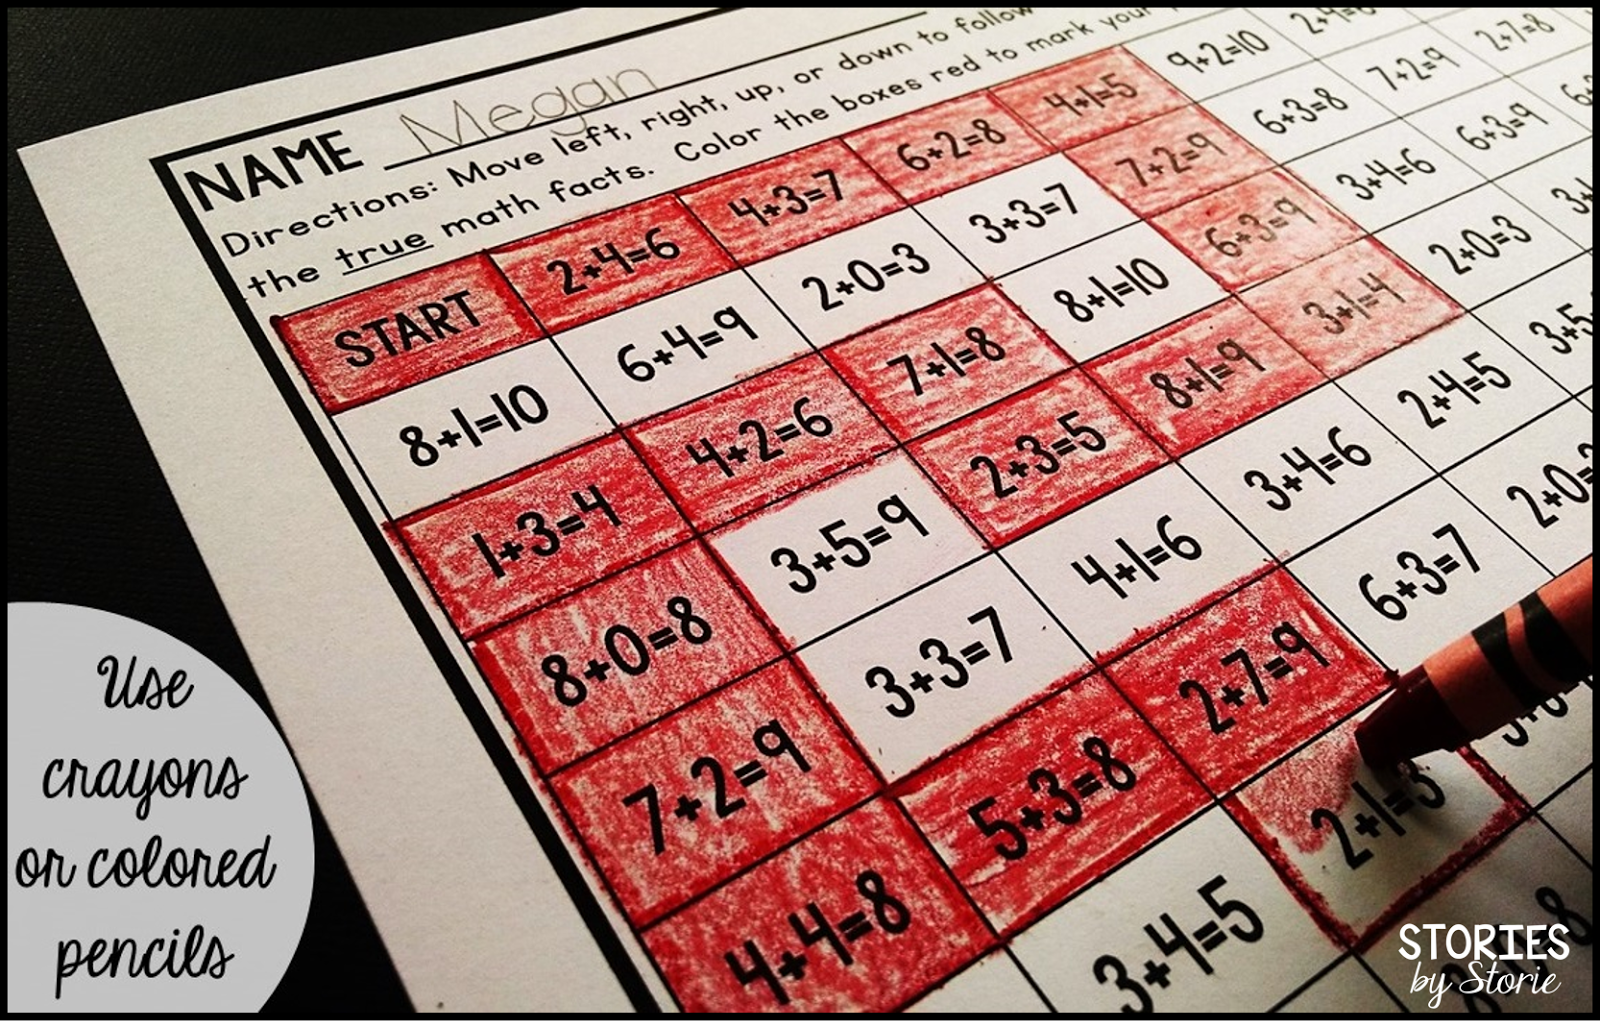 NAME Megan
Directions: Move left, right, up, or down to follow
the true math facts. Color the boxes red to mark your
START 2+4=6 4+3=7 6+2=8 4+1=5 9+2=10
8+1=10 6+4=9 2+0=3 3+3=7 7+2=9 6+3=8 7+2=9 2+7=8
1+3=4 4+2=6 7+1=8 8+1=10 6+3=9 3+4=6 6+3=9
8+0=8 3+5=9 2+3=5 8+1=9 3+1=4 2+0=3
7+2=9 3+3=7 4+1=6 3+4=6 2+4=5 3+5
4+4=8 5+3=8 2+7=9 6+3=7 2+0=
3+4=5 2+1=3
Use
crayons
or colored
pencils
STORIES
by Storie